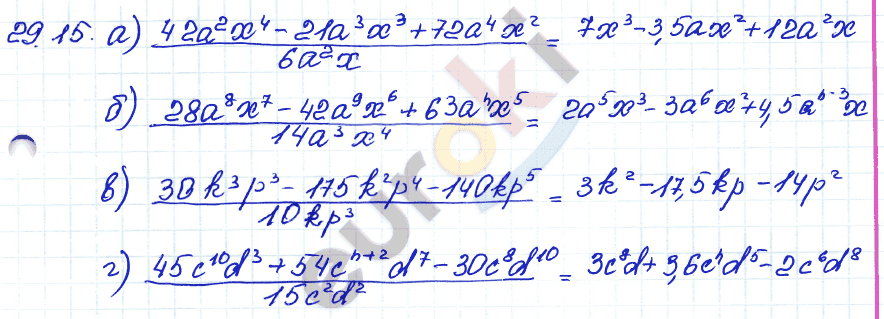 29.15. а) (42a²x⁴ - 21a³x³ + 72a⁴x²) / (6a²x) = 7x³ - 3,5ax² + 12a²x
б) (28a⁸x⁷ - 42a⁹x⁶ + 63aⁿx⁵) / (14a³x⁴) = 2a⁵x³ - 3a⁶x² + 4,5aⁿ⁻³x
в) (30k³p³ - 175k²p⁴ - 140kp⁵) / (10kp³) = 3k² - 17,5kp - 14p²
г) (45c¹⁰d³ + 54cⁿ⁺²d⁷ - 30c⁸d¹⁰) / (15c²d²) = 3c⁸d + 3,6cⁿd⁵ - 2c⁶d⁸
euroki